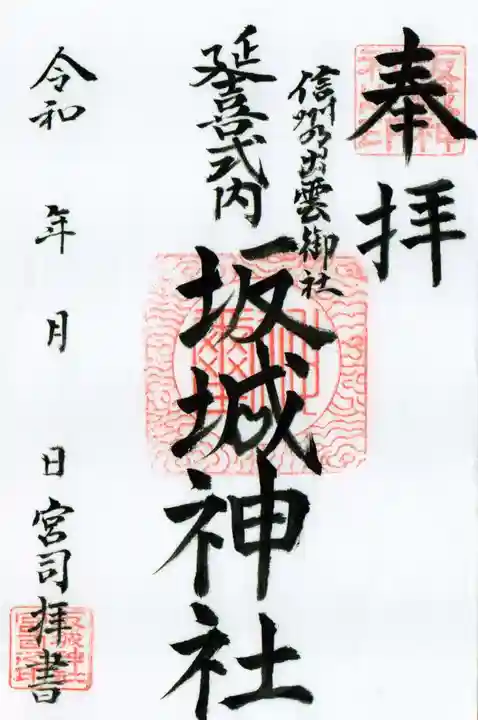 奉拝
信州乃出雲御社
延喜式内
坂城神社
令和 年 月 日
宮司拝書
坂城神社